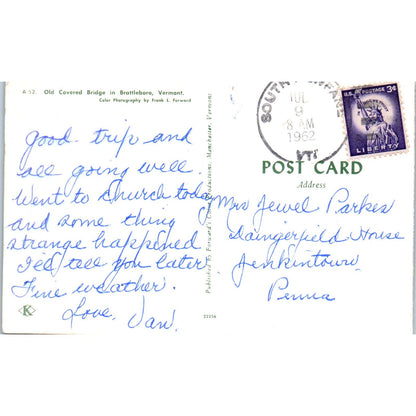 A-52. Old Covered Bridge in Brattleboro, Vermont.
Color Photography by Frank L. Forward
Good trip and
all going well.
Went to Church today
and some thing
strange happened
I'll tell you later
Fine weather.
Love, Van
K
Published by Forward's Color Productions, Manchester, Vermont
SOUTH
JUL
9
8 AM
1962
VT.
U.S. POSTAGE 3¢
LIBERTY
POST CARD
Address
Mrs Jewel Parkes
Daingerfield House
Jenkintown
Penna